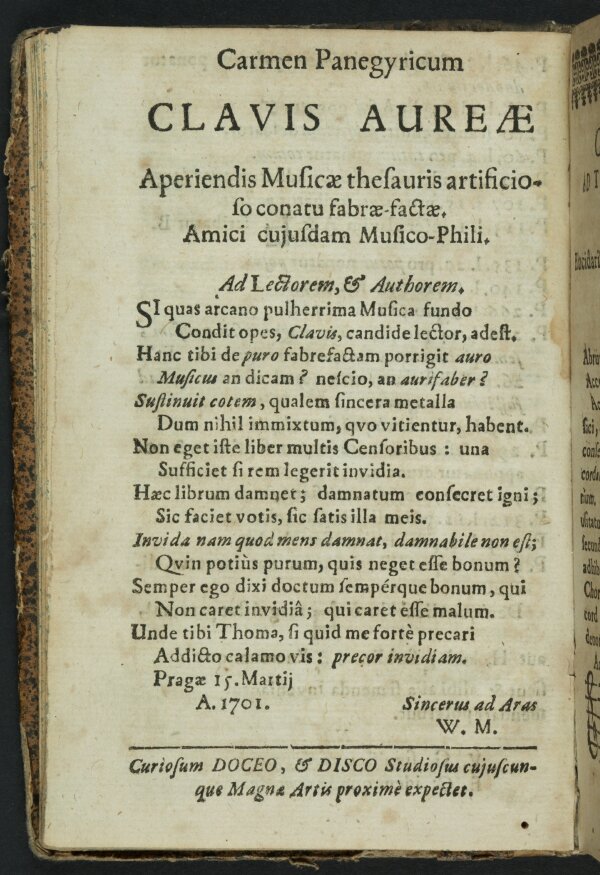 Carmen Panegyricum
CLAVIS AUREÆ
Aperiendis Muſicæ theſauris artificio-
ſo conatu fabræ-factæ.
Amici cujuſdam Muſico-Phili.
Ad Lectorem, & Authorem.
SI quas arcano pulherrima Muſica fundo
Condit opes, Clavis, candide lector, adeſt.
Hanc tibi de puro fabrefactam porrigit auro
Muſicus an dicam? neſcio, an aurifaber?
Suſtinuit cotem, qualem ſincera metalla
Dum nihil immixtum, qvo vitientur, habent.
Non eget iſte liber multis Cenſoribus: una
Sufficiet ſi rem legerit invidia.
Hæc librum damnet; damnatum conſecret igni;
Sic faciet votis, ſic ſatis illa meis.
Invida nam quod mens damnat, damnabile non eſt;
Qvin potiùs purum, quis neget eſſe bonum?
Semper ego dixi doctum ſempérque bonum, qui
Non caret invidiâ; qui caret eſſe malum.
Unde tibi Thoma, ſi quid me fortè precari
Addicto calamo vis: precor invidiam.
Pragæ 15. Martij
A. 1701. Sincerus ad Aras
W. M.
Curioſum DOCEO, & DISCO Studioſus cujuſcun-
que Magnæ Artis proximè expectet.